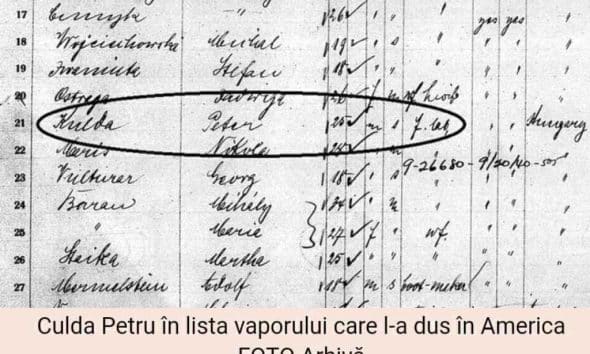 17 26 ✓ yes yes
18 Wojciechowski Michal 19 ✓ " s " " "
19 Stefan 18 ✓ " " " " "
20 Ostrega Jadwiga 26 ✓ f m
21 Kulda Peter 25 ✓ m s f. lab " " Hungary
22 Maris Nikola 25 ✓
9-26680-9/30/40-505
23 Vulturar Georg 18 ✓ " s
24 Boran Mihály
25 " Maria 27 ✓ f wf. " "
26 Staika Martha 25 ✓ " " " "
27 Mermelstein Adolf 18 ✓ m s boot-maker " "
Culda Petru în lista vaporului care l-a dus în America
FOTO Arhivă